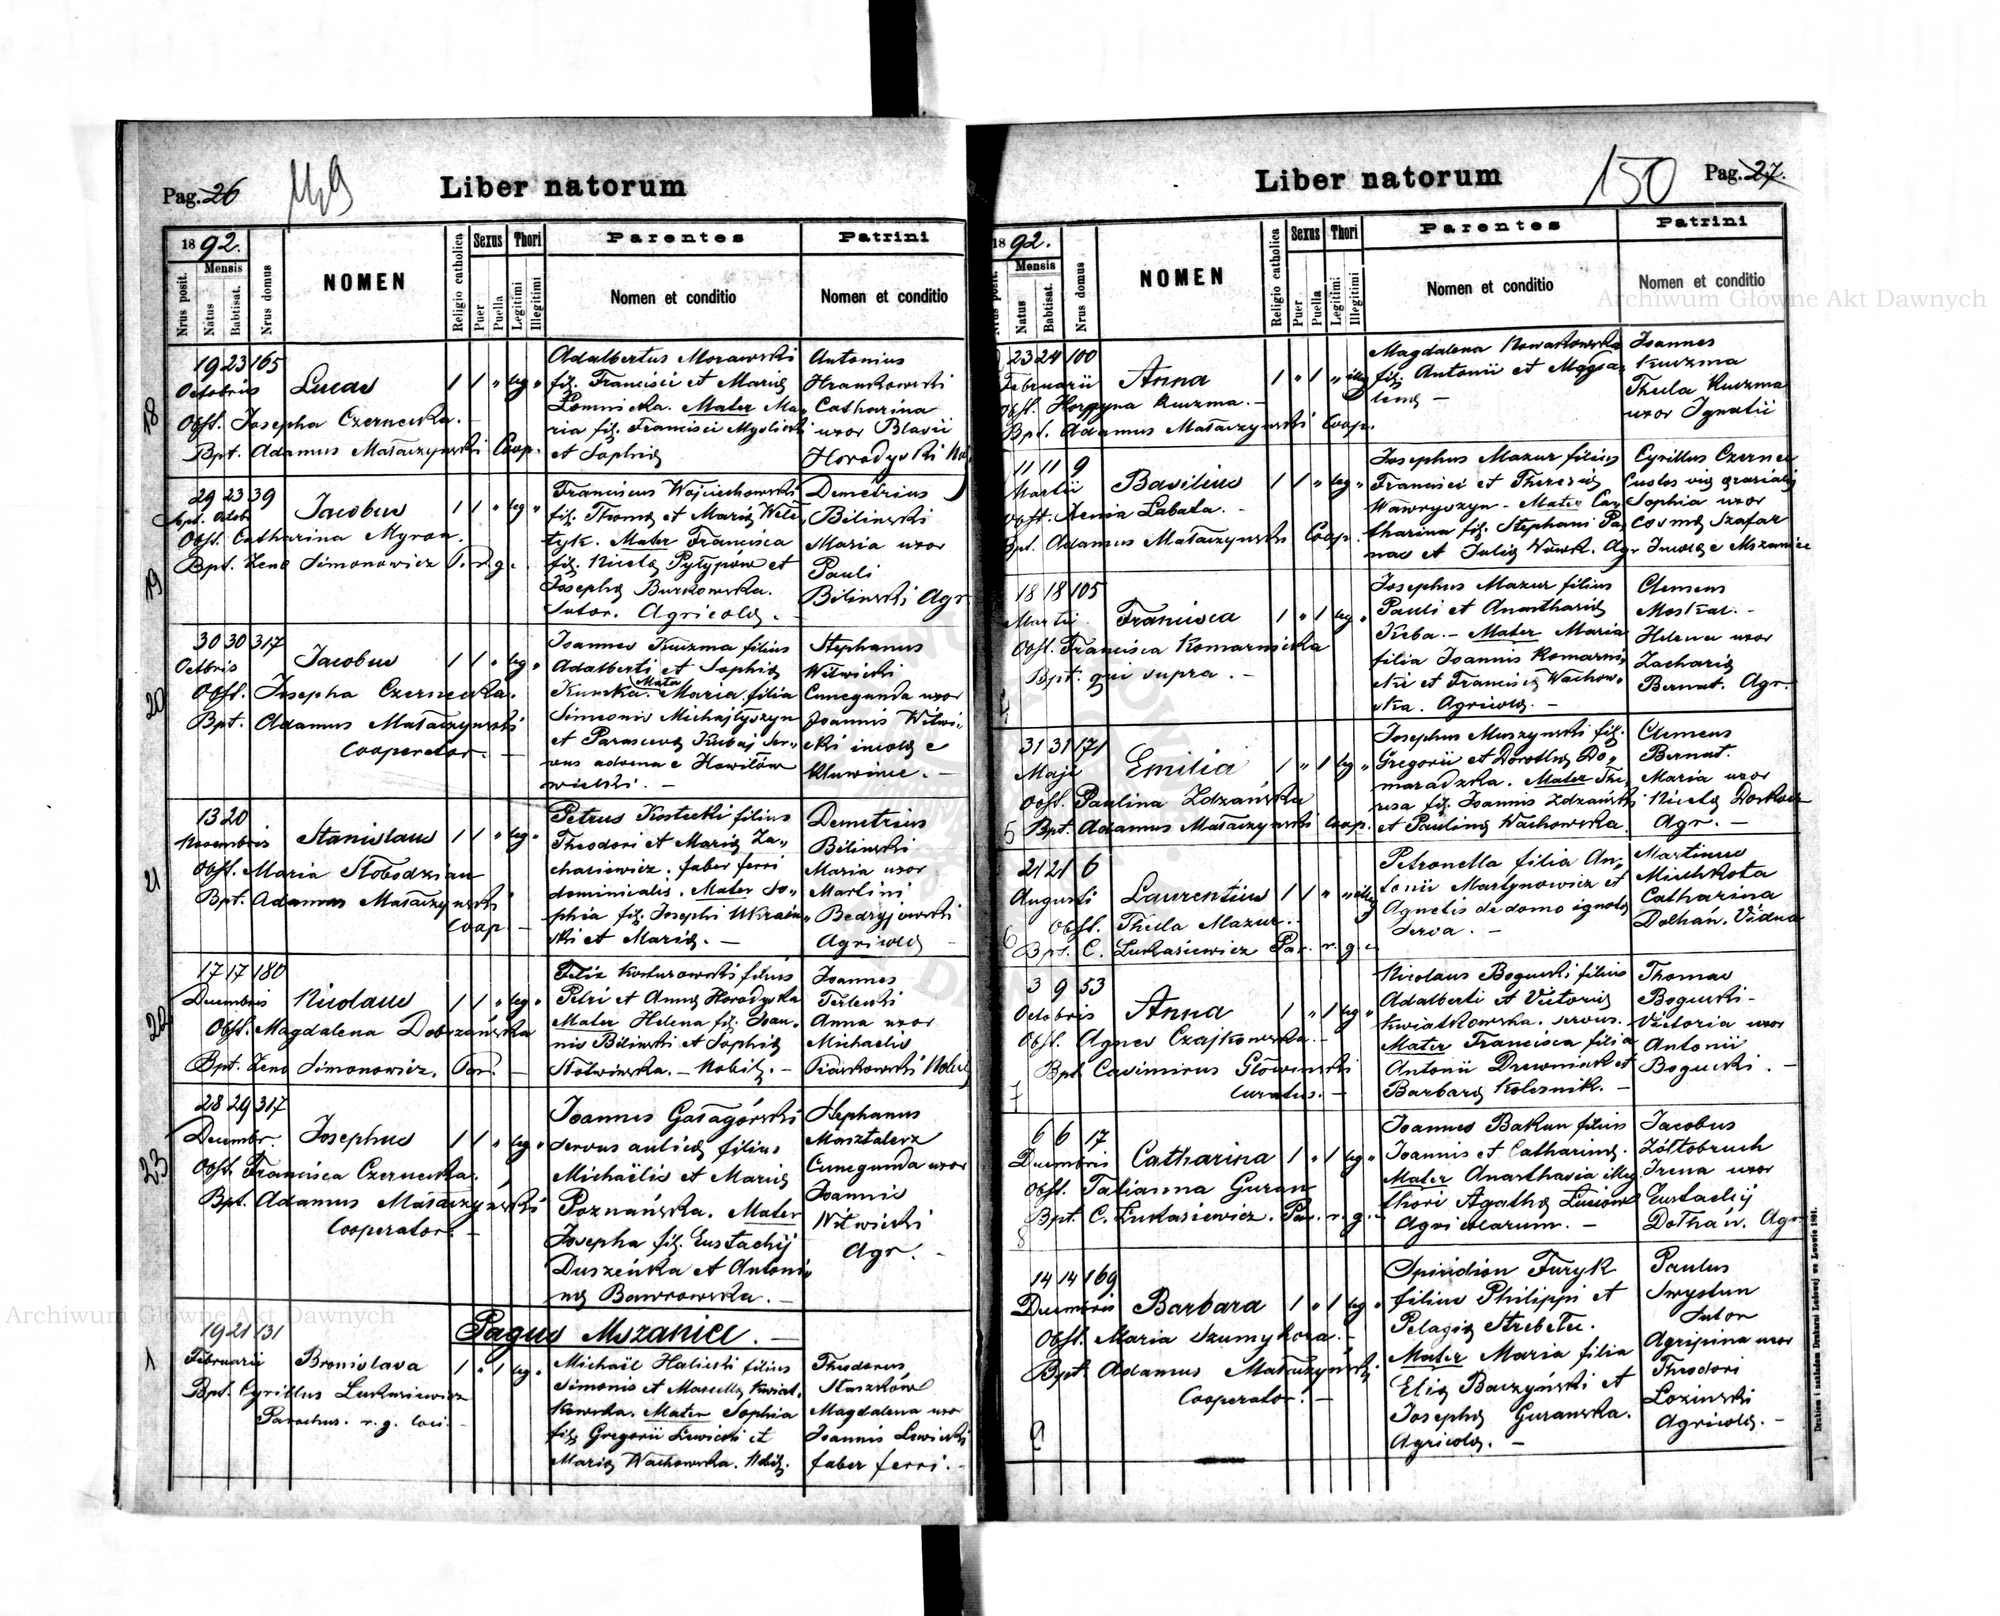 Pag. 26
149
Liber natorum
1892.
Mensis
Nrus posit.
Natus
Babtisat.
Nrus domus
NOMEN
Religio catholica
Sexus
Puer
Puella
Thori
Legitimi
Illegitimi
Parentes
Nomen et conditio
Patrini
Nomen et conditio
18
19 23 165
Octobris Lucas 1 1 " leg "
Obst. Josepha Czernecka.
Bpt. Adamus Małaczyński Coop.
Adalbertus Morawski
fil. Francisci et Mariae
Łomnicka. Mater Ma-
ria fil. Francisci Myślicki
et Sophiae
Antonius
Hrankowski
Catharina
uxor Blasii
Horodyski
19
29 23 39
Sept. Octob Jacobus 1 1 " leg "
Obst. Catharina Myron.
Bpt. Zeno Simonowicz P. r. g.
Franciscus Wojciechowski
fil. Thomae et Mariae
tyk. Mater Francisca
fil. Nicetae Pyłypów et
Josepha Burkowska.
Sutor. Agricolae. -
Demetrius
Biliński
Maria uxor
Pauli
Biliński Agr.
20
30 30 317
Octbris Jacobus 1 1 " leg "
Obst. Josepha Czernecka.
Bpt. Adamus Małaczyński
Cooperator. -
Joannes Kuzma filius
Adalberti et Sophiae
Kumka. Mater Maria filia
Simeonis Michajłyszyn
et Parascevae Kubaj Ser-
vus advena e Hawiłów
wielki. -
Stephanus
Witwicki
Cunegunda uxor
Joannis Witwi-
cki incolae e
Kluwince. -
21
13 20
Novembris Stanislaus 1 1 " leg "
Obst. Maria Słobodzian
Bpt. Adamus Małaczyński
Coop. -
Petrus Kostecki filius
Theodori et Mariae Za-
chariewicz; faber ferri
dominicalis. Mater So-
phia fil. Josephi Ukraiń-
ski et Mariae. -
Demetrius
Biliński
Maria uxor
Martini
Bedryjowski
Agricolae -
22
17 17 180
Decembris Nicolaus 1 1 " leg "
Obst. Magdalena Dobrzańska
Bpt. Zeno Simonowicz. Par. -
Felix Kosturowski filius
Petri et Annae Horodyska
Mater Helena fil. Joan-
nis Biliński et Sophiae
Słotwińska. - Nobil. -
Joannes
Terlecki
Anna uxor
Michaelis
Piaskowski
23
28 29 317
Decembr. Josephus 1 1 " leg "
Obst. Francisca Czernecka.
Bpt. Adamus Małaczyński
Cooperator. -
Joannes Gałagórski
servus aulicus filius
Michaëlis et Mariae
Poznańska. Mater
Josepha fil. Eustachij
Duszeńka et Antoni-
nae Bawrowska. -
Stephanus
Masztalerz
Cunegunda uxor
Joannis
Witwicki
Agr. -
Pagus Mszaniec. -
1
19 21 131
Februarii Bronislava 1 " 1 leg "
Bpt. Cyrillus Łukasiewicz
Parochus. r. g. loci. -
Michaël Halicki filius
Simonis et Marcellae Kwiat-
kowska. Mater Sophia
filia Gregorii Lewicki et
Mariae Wachowska. Nobil.
Theodorus
Staszków
Magdalena uxor
Joannis Lewicki
faber ferri. -
Pag. 27.
150
Liber natorum
1892.
Mensis
Nrus posit.
Natus
Babtisat.
Nrus domus
NOMEN
Religio catholica
Sexus
Puer
Puella
Thori
Legitimi
Illegitimi
Parentes
Nomen et conditio
Patrini
Nomen et conditio
23 24 100
Februarii Anna 1 " 1 " illeg
Obst. Horpyna Kuzma. -
Bpt. Adamus Małaczyński Coop.
Magdalena Nowakowska
fil. Antonii et Magda-
lenae -
Joannes
Kuzma
Thecla Kuzma
uxor Ignatii
11 11 9
Martii Basilius 1 1 " leg "
Obst. Xenia Łabata. -
Bpt. Adamus Małaczyński Coop.
Josephus Mazur filius
Francisci et Theresiae
Wawryszyn - Mater Ca-
tharina fil. Stephani Pa-
nas et Juliae Wowk. Agr.
Cyrillus Czernec
Custos viae
Sophia uxor
Cosmae Szafar
Incolae e Mszaniec
4
18 18 105
Martii Francisca 1 " 1 leg "
Obst. Francisca Komarnicka
Bpt. qui supra. -
Josephus Mazur filius
Pauli et Anasthasiae
Kuba. - Mater Maria
filia Joannis Komarni-
cki et Franciscae Wachow-
ska. Agricolae. -
Clemens
Moskal. -
Helena uxor
Zachariae
Bernat. Agr.
5
31 31 171
Maji Emilia 1 " 1 leg "
Obst. Paulina Zdzańska
Bpt. Adamus Małaczyński Coop.
Josephus Muszyński fil.
Gregorii et Dorotheae Do-
maradzka. Mater The-
resa fil. Joannis Zdzański
et Paulinae Wachowska.
Clemens
Bernat.
Maria uxor
Nicetae
Agr. -
6
21 21 6
Augusti Laurentius 1 1 " " illeg
Obst. Thecla Mazur. -
Bpt. C. Łukasiewicz Par. r. g. -
Petronella filia An-
tonii Martynowicz et
Agnetis de domo ignotae
Serva. -
Martinus
Michkota
Catharina
Dołhań. Vidua
7
3 9 53
Octobris Anna 1 " 1 leg "
Obst. Agnes Czajkowska. -
Bpt. Casimirus Głowiński
Curatus. -
Nicolaus Bogucki filius
Adalberti et Victoriae
Kwiatkowska. servus.
Mater Francisca filia
Antonii Drewniak et
Barbarae Kolesnik. -
Thomas
Bogucki -
Victoria uxor
Antonii
Bogucki. -
8
6 6 17
Decembris Catharina 1 " 1 leg "
Obst. Tatianna Guran
Bpt. C. Łukasiewicz. Par. r. g. -
Joannes Bakun filius
Joannis et Catharinae.
Mater Anasthasia illeg.
thori Agathae Łuciów
Agricolarum. -
Jacobus
Żółtobruch
Irena uxor
Eustachij
Dołhań. Agr.
9
14 14 169
Decembris Barbara 1 " 1 leg "
Obst. Maria Szumykora. -
Bpt. Adamus Małaczyński
Cooperator. -
Spiridion Furyk
filius Philippi et
Pelagiae Strebele.
Mater Maria filia
Eliae Baczyński et
Josephae Guranska.
Agricolae. -
Paulus
Swystun
Sutor
Agripina uxor
Theodori
Łoziński
Agricolae. -
Drukiem i nakładem Drukarni Ludowej we Lwowie 1891.
Archiwum Główne Akt Dawnych
Archiwum Główne Akt Dawnych